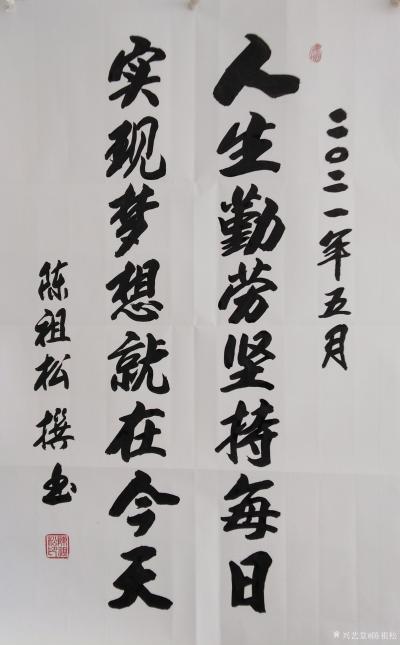 二〇二一年五月
人生勤劳坚持每日
实现梦想就在今天
陈祖松撰书
兴艺堂@陈祖松